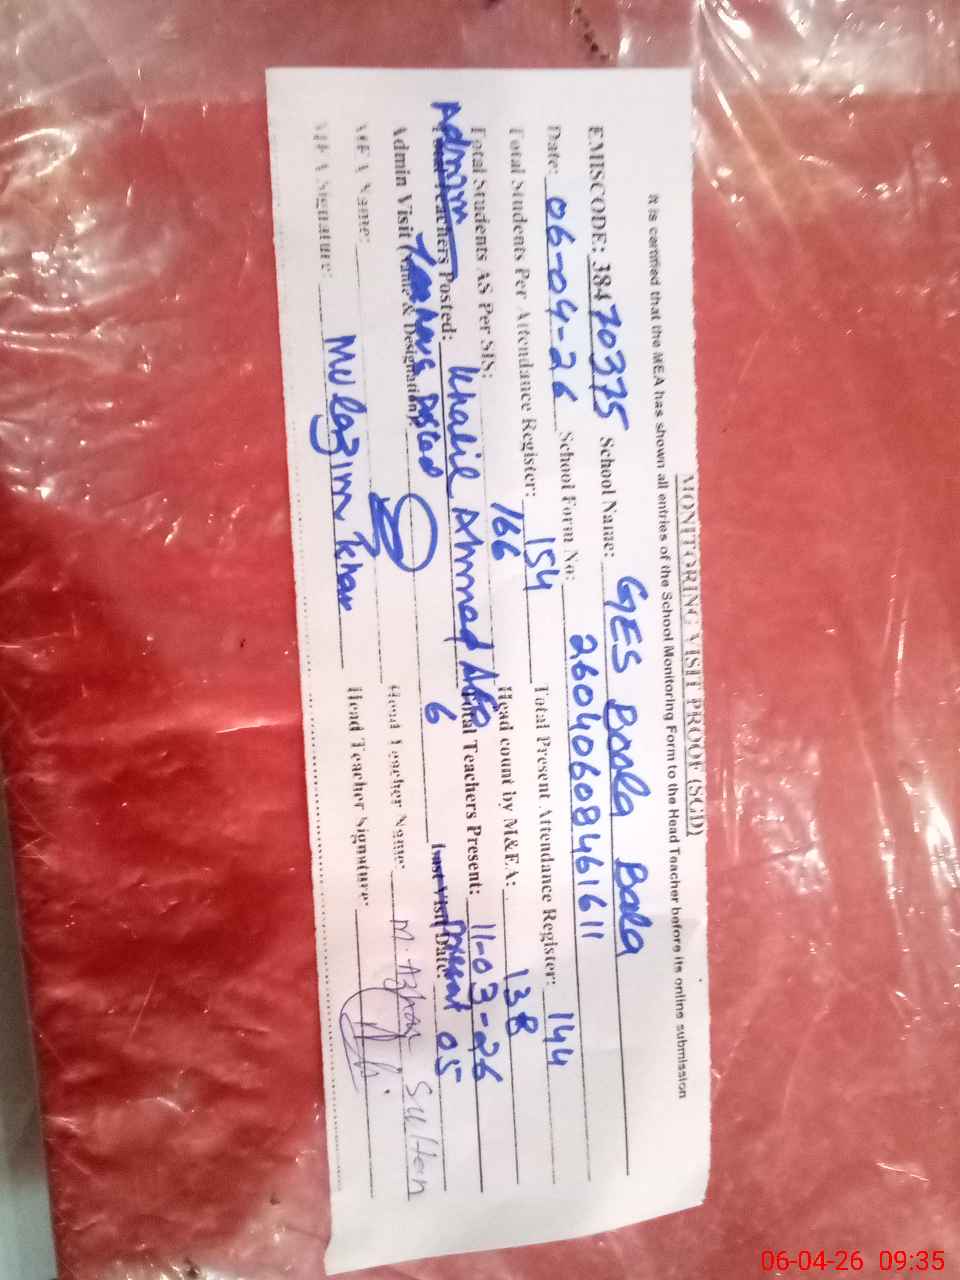 MONITORING VISIT PROOF (SGD)
It is certified that the MEA has shown all entries of the School Monitoring Form to the Head Teacher before its online submission
EMISCODE: 38470375 School Name: GES Boola Bala
Date: 06-04-26 School Form No: 26040608461611
Total Students Per Attendance Register: 154 Total Present Attendance Register: 144
Total Students AS Per SIS: 166 Head count by M&EA: 138
Admin Posted: Khalil Ahmad AEO Total Teachers Present: 11-03-26
Admin Visit (Name & Designation): Posted 6 Last Visit Date: Present 05
MEA Name: Head Teacher Name: M. Azhar Sultan
MEA Signature: Mulazim Khan Head Teacher Signature:
06-04-26 09:35